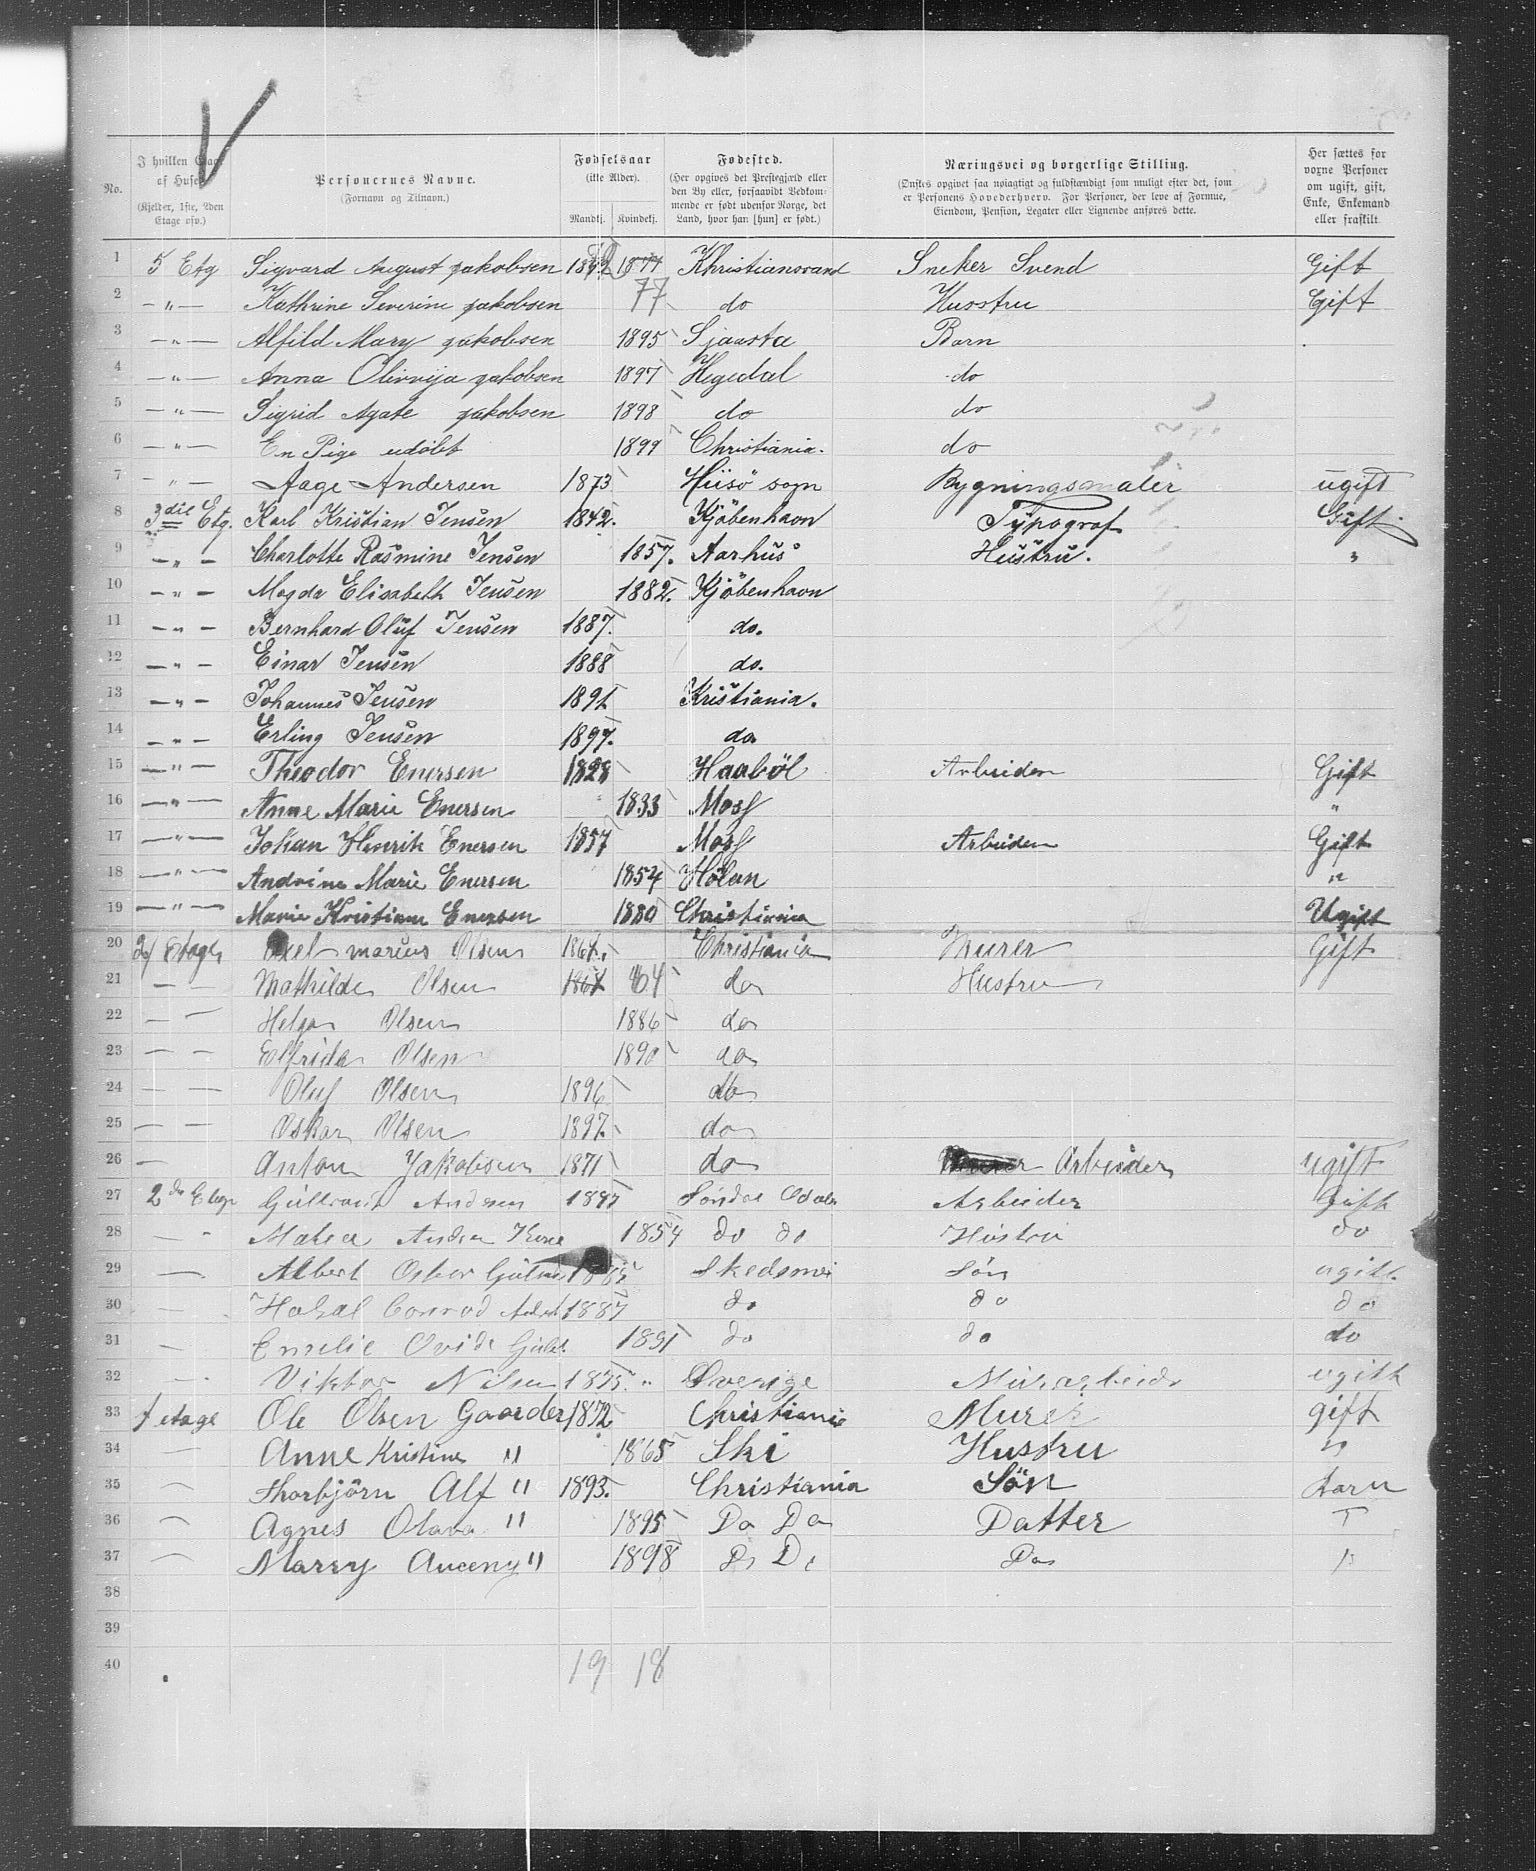 V
No.
I hvilken Etage af Huset (Kjelder, 1ste, 2den Etage osv.)
Personernes Navne. (Fornavn og Tilnavn.)
Fødselsaar (ikke Alder). Mandkj. Kvindekj.
Fødested. (Her opgives det Prestegjæld eller den By eller, forsaavidt Vedkommende er født udenfor Norge, det Land, hvor han [hun] er født.)
Næringsvei og borgerlige Stilling. (Ønskes opgivet saa nøiagtigt og fuldstændigt som muligt efter det, som er Personens Hovederhverv. For Personer, der leve af Formue, Eiendom, Pension, Legater eller Lignende anføres dette.
Her sættes for voxne Personer om ugift, gift, Enke, Enkemand eller fraskilt.
1 5 Etg Sigvard August Jakobsen 1872 1877 Khristiansand Sneker Svend Gift
2 — " — Kathrine Severine Jakobsen 77 do Husstru Gift
3 — " — Alfild Mary Jakobsen 1895 Sjaasta Barn
4 — " — Anna Olivvija Jakobsen 1897 Hegedal do
5 — " — Sigrid Agate Jakobsen 1898 do do
6 — " — En Pige udøbt 1899 Christiania. do
7 — " — Aage Andersen 1873 Hiisö sogn Bygningsmaler ugift
8 3die Etg. Karl Kristian Jensen 1842. Kjöbenhavn Typograf Gift.
9 — " — Charlotte Rasmine Jensen 1857. Aarhus Hustru. "
10 — " — Magda Elisabeth Jensen 1882. Kjöbenhavn
11 — " — Bernhard Oluf Jensen 1887. do.
12 — " — Einar Jensen 1888 do.
13 — " — Johannes Jensen 1891 Kristiania.
14 — " — Erling Jensen 1897. do
15 — " — Theodor Enersen 1828 Haaböl Arbeider Gift
16 — " — Anne Marie Enersen 1833 Moss "
17 — " — Johan Henrik Enersen 1857 Moss Arbeider Gift
18 — " — Andrine Marie Enersen 1854 Hölan "
19 — " — Marie Kristiane Enersen 1880 Christiania Ugift
20 2 Etage Axel marius Olsen 1864. Christiania Murer Gift
21 — — Mathilde Olsen 1864 64 do Hustru
22 — — Helga Olsen 1886 do
23 — — Elfrida Olsen 1890 do
24 — — Oluf Olsen 1896 do
25 — — Oskar Olsen 1897. do
26 — Anton Jakobsen 1871 do Arbeider ugift
27 2de Etage Gulbrand Andersen Søndre Odalen Arbeider Gift
28 — " 1854 do do Hustru do
29 — Albert Oskar Skedsmo Sön ugift.
30 — 1887 do do do
31 — Emelie 1891 do do do
32 — Viktor Nilsen 1875. " Sverige Murarbeider ugift
33 1 etage Ole Olsen Gaarder 1872 Christiania Murer gift
34 — Anne Kristine " 1865 Ski Hustru "
35 — Thorbjörn Alf " 1893. Christiania Sön barn
36 — Agnes Olava " 1895 Do Do Datter
37 — Marry " 1898 Do Do Do "
38
39
40 19 18